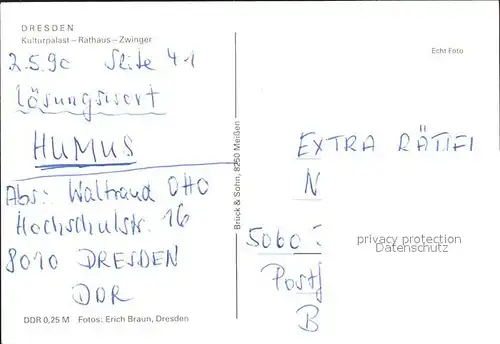 DRESDEN
Kulturpalast – Rathaus – Zwinger
2.5.90 Seite 41
Lösungswort
HUMUS
Abs.: Waltraud Otto
Hochschulstr. 16
8010 DRESDEN
DDR
DDR 0,25 M Fotos: Erich Braun, Dresden
Brück & Sohn, 8250 Meißen
Echt Foto
EXTRA RÄTIFI
N
5060
Postf
B
privacy protection
Datenschutz